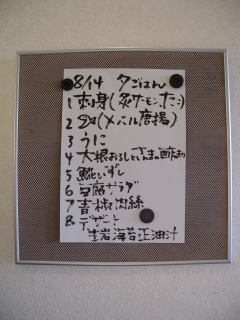 8/14 夕ごはん
1 刺身(炙サーモン、たこ)
2 (メバル唐揚)
3 うに
4 大根おろしとさんまの酢
5 鯱いずし
6 豆腐サラダ
7 青椒肉絲
8 デザート
生岩海苔正油汁